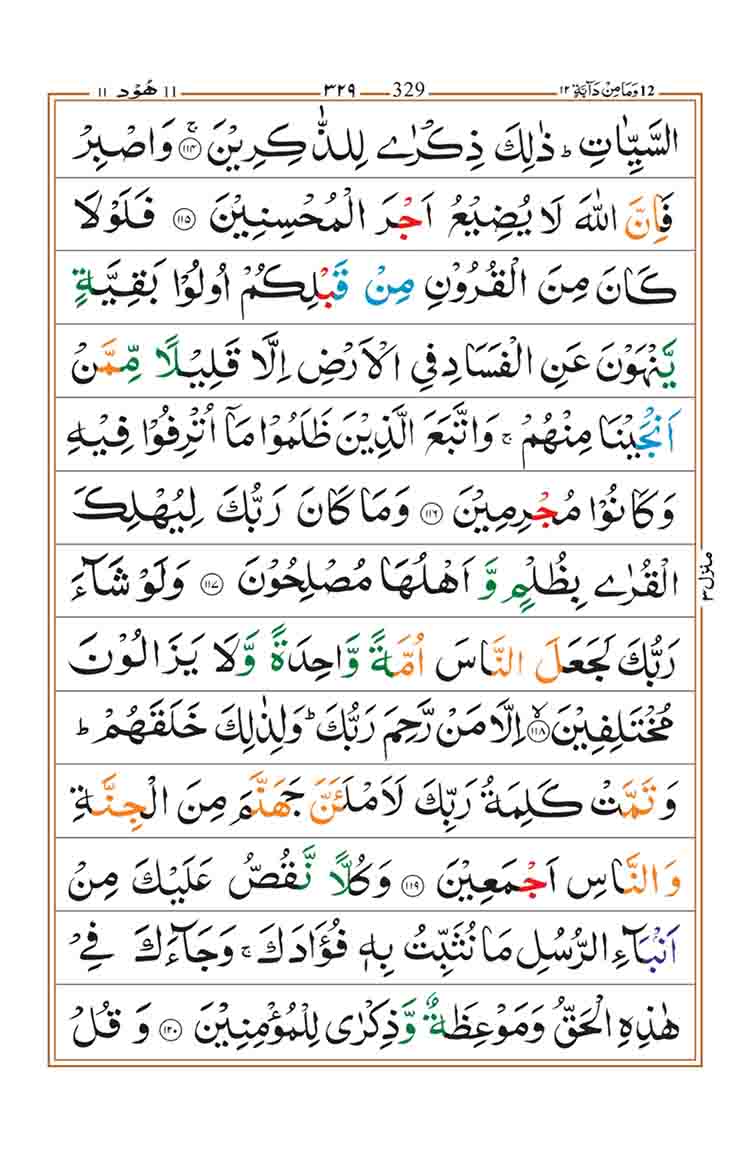 12 وَمَا مِنْ دَآبَّةٍ ١٢ 329 ٣٢٩ 11 هُوْد ١١
السَّيِّاٰتِ ؕ ذٰلِكَ ذِكْرٰى لِلذّٰكِرِيْنَ ۚ﴿۱۱۴﴾ وَاصْبِرْ
فَاِنَّ اللّٰهَ لَا يُضِيْعُ اَجْرَ الْمُحْسِنِيْنَ ﴿۱۱۵﴾ فَلَوْلَا
كَانَ مِنَ الْقُرُوْنِ مِنْ قَبْلِكُمْ اُولُوْا بَقِيَّةٍ
يَّنْهَوْنَ عَنِ الْفَسَادِ فِي الْاَرْضِ اِلَّا قَلِيْلًا مِّمَّنْ
اَنْجَيْنَا مِنْهُمْ ۚ وَاتَّبَعَ الَّذِيْنَ ظَلَمُوْا مَاۤ اُتْرِفُوْا فِيْهِ
وَكَانُوْا مُجْرِمِيْنَ ﴿۱۱۶﴾ وَمَا كَانَ رَبُّكَ لِيُهْلِكَ
الْقُرٰى بِظُلْمٍ وَّ اَهْلُهَا مُصْلِحُوْنَ ﴿۱۱۷﴾ وَلَوْ شَآءَ
رَبُّكَ لَجَعَلَ النَّاسَ اُمَّةً وَّاحِدَةً وَّلَا يَزَالُوْنَ
مُخْتَلِفِيْنَ ۙ﴿۱۱۸﴾ اِلَّا مَنْ رَّحِمَ رَبُّكَ ؕ وَلِذٰلِكَ خَلَقَهُمْ ؕ
وَتَمَّتْ كَلِمَةُ رَبِّكَ لَاَمْلَئَنَّ جَهَنَّمَ مِنَ الْجِنَّةِ
وَالنَّاسِ اَجْمَعِيْنَ ﴿۱۱۹﴾ وَكُلًّا نَّقُصُّ عَلَيْكَ مِنْ
اَنْۢبَآءِ الرُّسُلِ مَا نُثَبِّتُ بِهٖ فُؤَادَكَ ۚ وَجَآءَكَ فِيْ
هٰذِهِ الْحَقُّ وَمَوْعِظَةٌ وَّذِكْرٰى لِلْمُؤْمِنِيْنَ ﴿۱۲۰﴾ وَقُلْ
منزل ٣